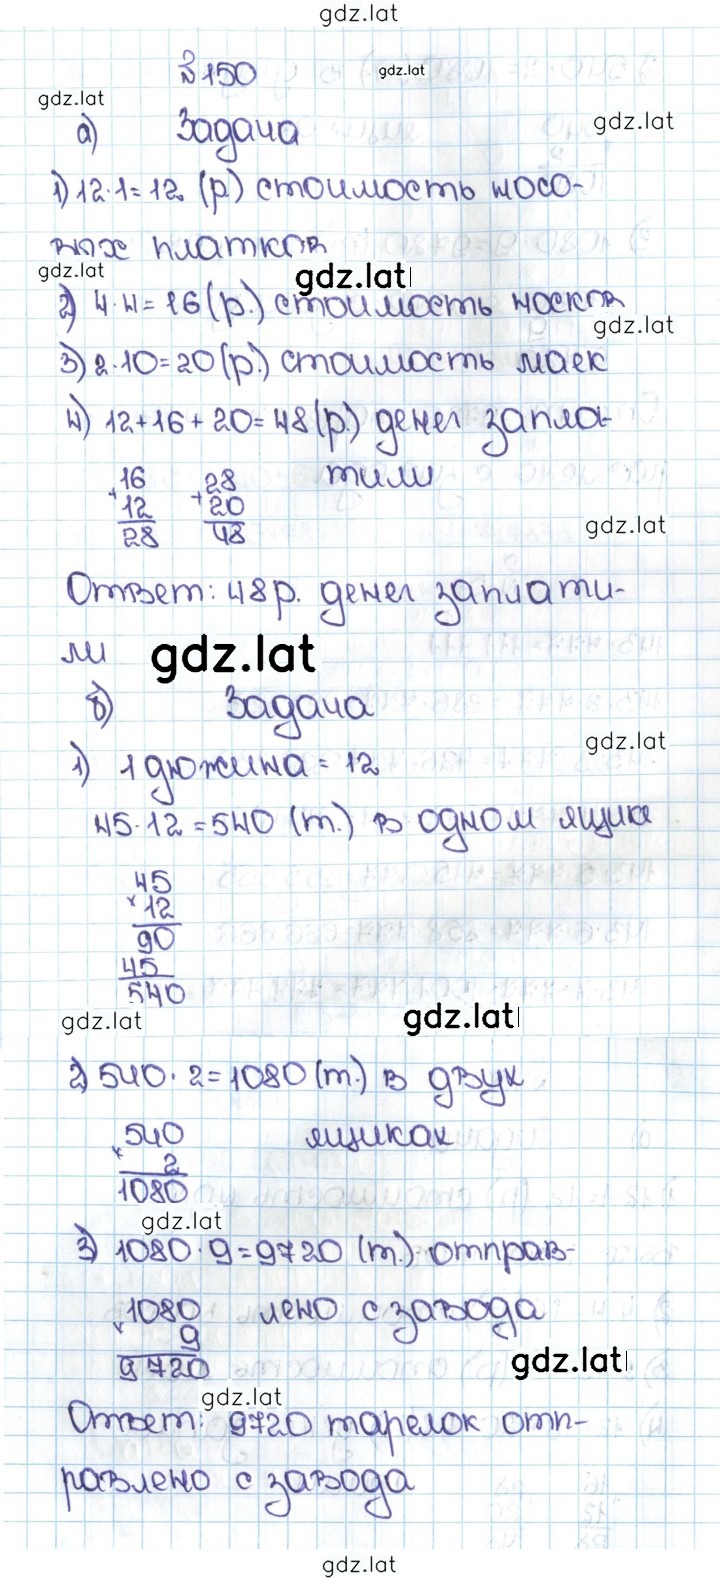 gdz.lat
№150
gdz.lat
gdz.lat
а) Задача
gdz.lat
1) 12·1=12 (р) стоимость носо-
вых платков
gdz.lat
gdz.lat
2) 4·4=16 (р.) стоимость носков
gdz.lat
3) 2·10=20 (р.) стоимость маек
4) 12+16+20=48 (р.) денег запла-
тили
+16 +28
12 20
28 48
gdz.lat
Ответ: 48р. денег заплати-
ли
gdz.lat
б) Задача
gdz.lat
1) 1 дюжина = 12
45·12=540 (т.) в одном ящике
45
×12
90
45
540
gdz.lat
gdz.lat
2) 540·2=1080 (т.) в двух
×540 ящиках
2
1080
gdz.lat
3) 1080·9=9720 (т.) отправ-
×1080 лено с завода
9
9720
gdz.lat
gdz.lat
Ответ: 9720 тарелок отп-
равлено с завода
gdz.lat